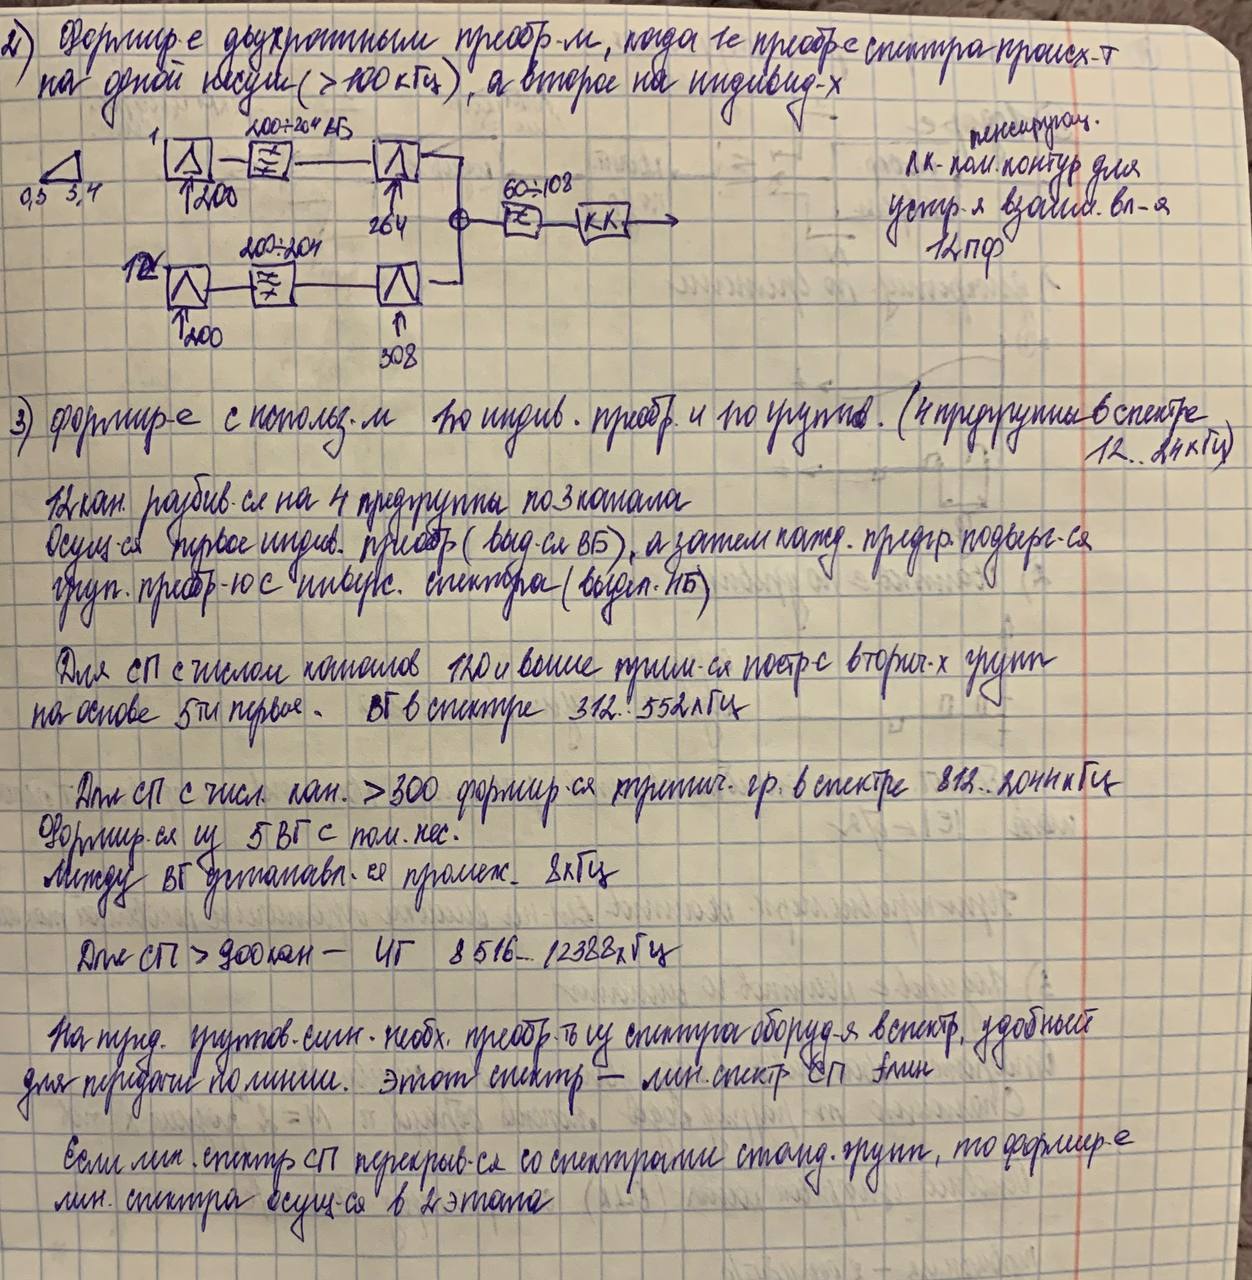 2) Формир-е двукратным преобр-м, когда 1е преобр-е спектра происх-т
на одной несущ (>100 кГц), а второе на индивид-х
200÷204 кГц
1
0,3 3,4
200
264
60÷108
КК
12
200÷204
200
308
пенсирующ.
КК-ком. контур для
устр-я взаим. вл-я
12 ПФ
3) Формир-е с использ-м 1го индив. преобр. и 1го группов. (4 предгруппы в спектре
12..24 кГц)
12 кан. разбив-ся на 4 предгруппы по 3 канала
Осущ-ся первое индив. преобр (выд-ся ВБ), а затем кажд. предгр. подверг-ся
груп. преобр-ю с инверс. спектра (выдел. НБ)
Для СП с числом каналов 120 и выше прим-ся постр-е вторич-х групп
на основе 5ти первое. ВГ в спектре 312..552 кГц
Для СП с числ. кан. >300 формир-ся третич. гр. в спектре 812..2044 кГц
Формир-ся из 5 ВГ с пом. нес.
Между ВГ устанавл-ся промеж. 8 кГц
Для СП > 900 кан — ЧГ 8516.. 12388 кГц
группов. сигн. необх. преобр-ть из спектра оборуд-я в спектр, удобный
для передачи по линии. Этот спектр — лин. спектр СП fлин
Если лин. спектр СП перекрыв-ся со спектрами станд. групп, то формир-е
лин. спектра осущ-ся в 2 этапа